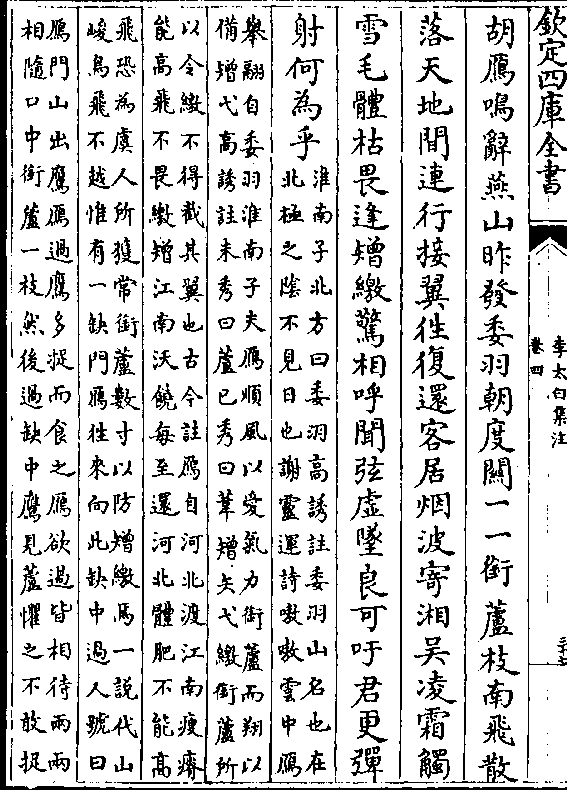 欽定四庫全書
李太白集注
卷四
胡鴈鳴辭燕山昨發委羽朝度關一一銜蘆枝南飛散
落天地間連行接翼往復還客居烟波寄湘吳凌霜觸
雪毛體枯畏逢矰繳驚相呼聞弦虛墜良可吁君更彈
射何為乎
淮南子北方曰委羽高誘註委羽山名也在
北極之陰不見日也謝靈運詩嗷嗷雲中鴈
舉翮自委羽淮南子夫鴈順風以愛氣力銜蘆而翔以
備矰弋高誘註未秀曰蘆已秀曰葦矰矢弋繳銜蘆所
以令繳不得截其翼也古今註鴈自河北渡江南瘦瘠
能高飛不畏繳矰江南沃饒每至還河北體肥不能高
飛恐為虞人所獲常銜蘆數寸以防矰繳焉一說代山
峻鳥飛不越惟有一缺門鴈往來向此缺中過人號曰
鴈門山出鷹鴈過鷹多捉而食之鴈欲過皆相待兩兩
相隨口中銜蘆一枝然後過缺中鷹見蘆懼之不敢捉